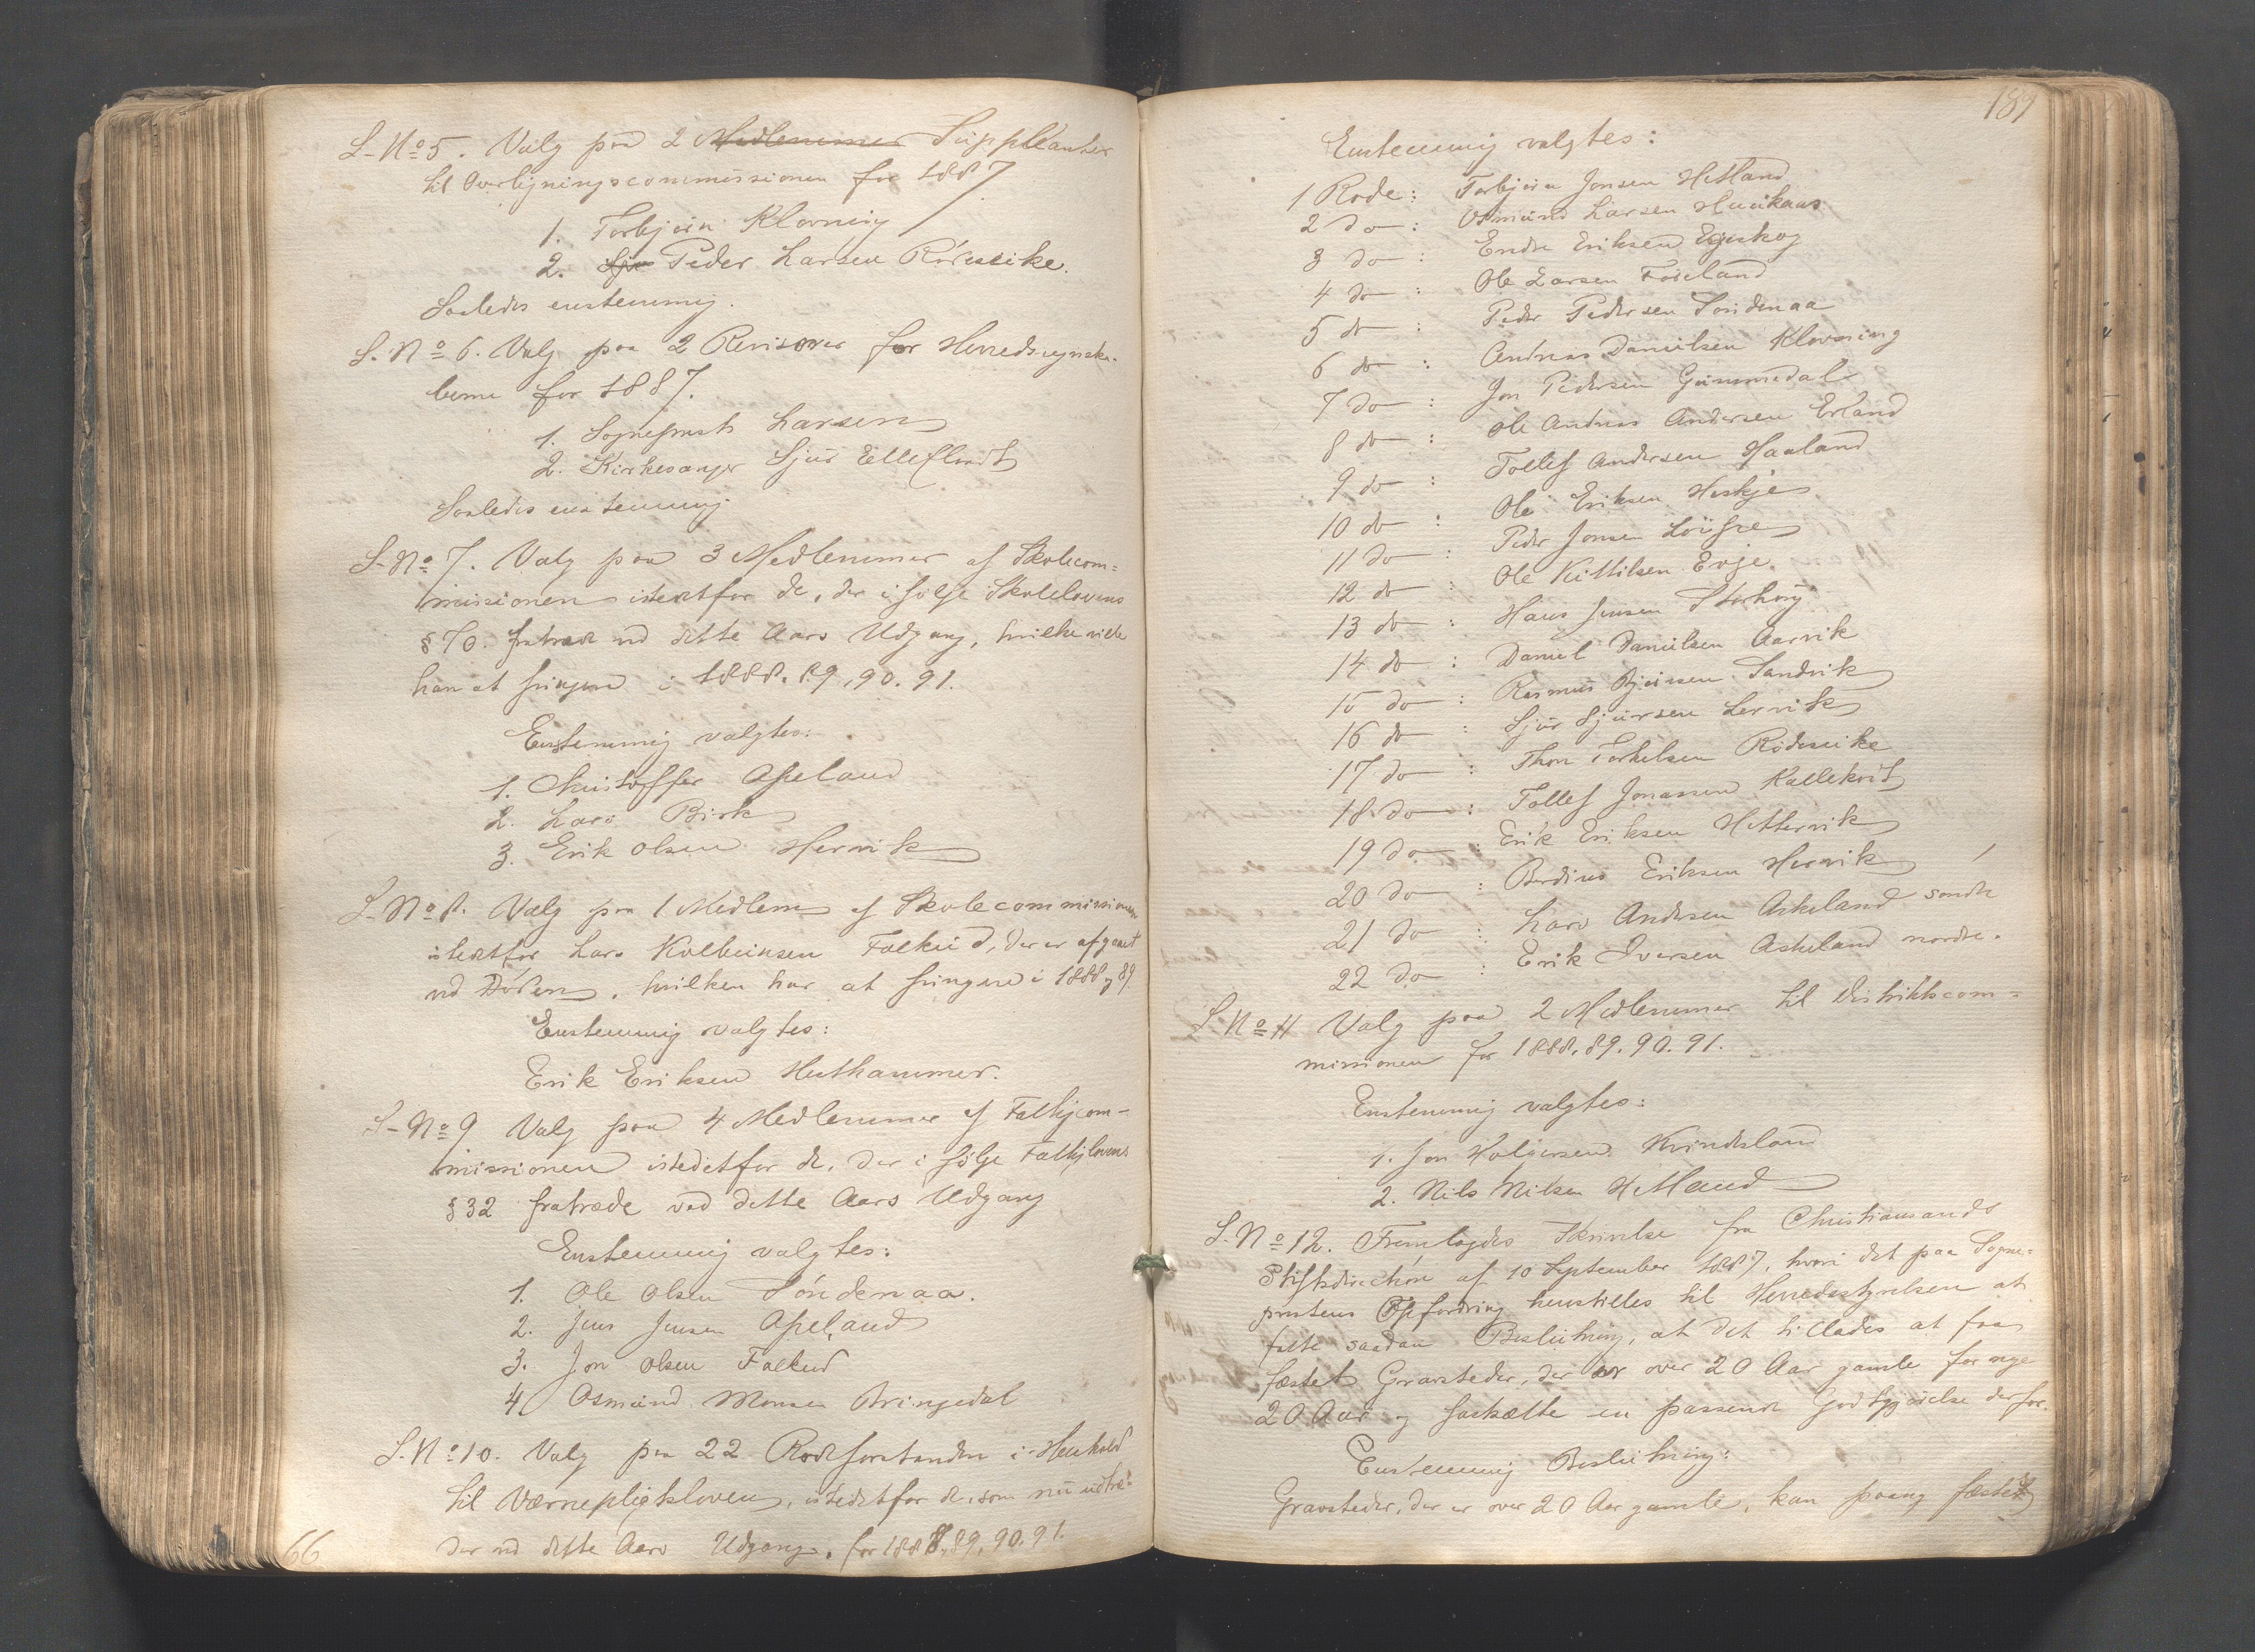 S. No 5. Valg paa 2 Medlemmer Suppleanter
til Overligningscommissionen for 1887
1. Torbjørn Klovning
2. Peder Larsen Rødseike.
Saaledes enstemmig.
S. No 6. Valg paa 2 Revisorer for Herredsregnska-
berne for 1887.
1. Sogneprest Larsen
2. Kirkesanger Sjur Elleflodt
Saaledes enstemmig
S. No 7. Valg paa 3 Medlemmer af Skolecom=
missionen istedetfor de, der i følge Skolelovens
§ 70. fratræde ved dette Aars Udgang, hvilke ville
have at fungere i 1888. 89, 90. 91.
Enstemmig valgtes:
1. Christoffer Apeland
2. Lars Birk
3. Erik Olsen Hervik
S. No 8. Valg paa 1 Medlem af Skolecommissionen
istedetfor Lars Kolbeinsen Falkeid, der er afgaaet
ved Døden, hvilken har at fungere i 1888 og 89.
Enstemmig valgtes:
Erik Eriksen Hesthammer.
S. No 9 Valg paa 4 Medlemmer af Fattigcom-
missionen istedetfor de, der i følge Fattiglovens
§ 32 fratræde ved dette Aars Udgang
Enstemmig valgtes:
1. Ole Olsen Søndenaa.
2. Jens Jensen Apeland
3. Jon Olsen Falkeid
4 Osmund Monsen Bringedal
S. No 10. Valg paa 22 Rodeforstandere i Henhold
til Værnepligtsloven, istedetfor de, som nu udtræ-
der ved dette Aars Udgang, for 1888, 89, 90. 91.
66
189
Enstemmig valgtes:
1 Rode: Torbjørn Jonsen Hetland
2 do : Osmund Larsen
3 do : Endre Eriksen Egeskog
4 do : Ole Larsen Føseland
5 do : Peder Pedersen Søndenaa
6 do : Andreas Danielsen Klovning
7 do : Jon Pedersen Grimmedal
8 do : Ole Andreas Andersen Erland
9 do : Tollef Andersen Haaland
10 do : Ole Eriksen Heskje
11 do : Peder Jonsen
12 do : Ole Kittilsen Evje.
13 do : Hans Jensen Storhoug
14 do : Daniel Danielsen Aarvik
15 do : Rasmus Bjørnsen Sandvik
16 do : Sjur Sjursen Lervik
17 do : Thore Torkelsen Rødseike
18 do : Tollef Jonassen Kallekodt
19 do : Erik Eriksen Hettervik
20 do : Berdines Eriksen Hervik
21 do : Lars Andersen Askeland søndre
22 do : Erik Iversen Askeland nordre.
S. No 11 Valg paa 2 Medlemmer til Distriktscom=
missionen for 1888. 89. 90. 91.
Enstemmig valgtes:
1. Jon Holgersen Kvindesland
2. Nils Nilsen Hetland
S. No 12. Fremlagdes Skrivelse fra Christiansands
Stiftsdirection af 10 September 1887, hvori det paa Sogne=
prestens Opfordring henstilles til Herredsstyrelsen at
fatte saadan Beslutning, at det tillades at faa
fæstet Gravsteder, der er over 20 Aar gamle for nye
20 Aar og fastsætte en passende Godtgjørelse derfor.
Enstemmig Beslutning:
Gravsteder, der er over 20 Aar gamle, kan paany fæstes